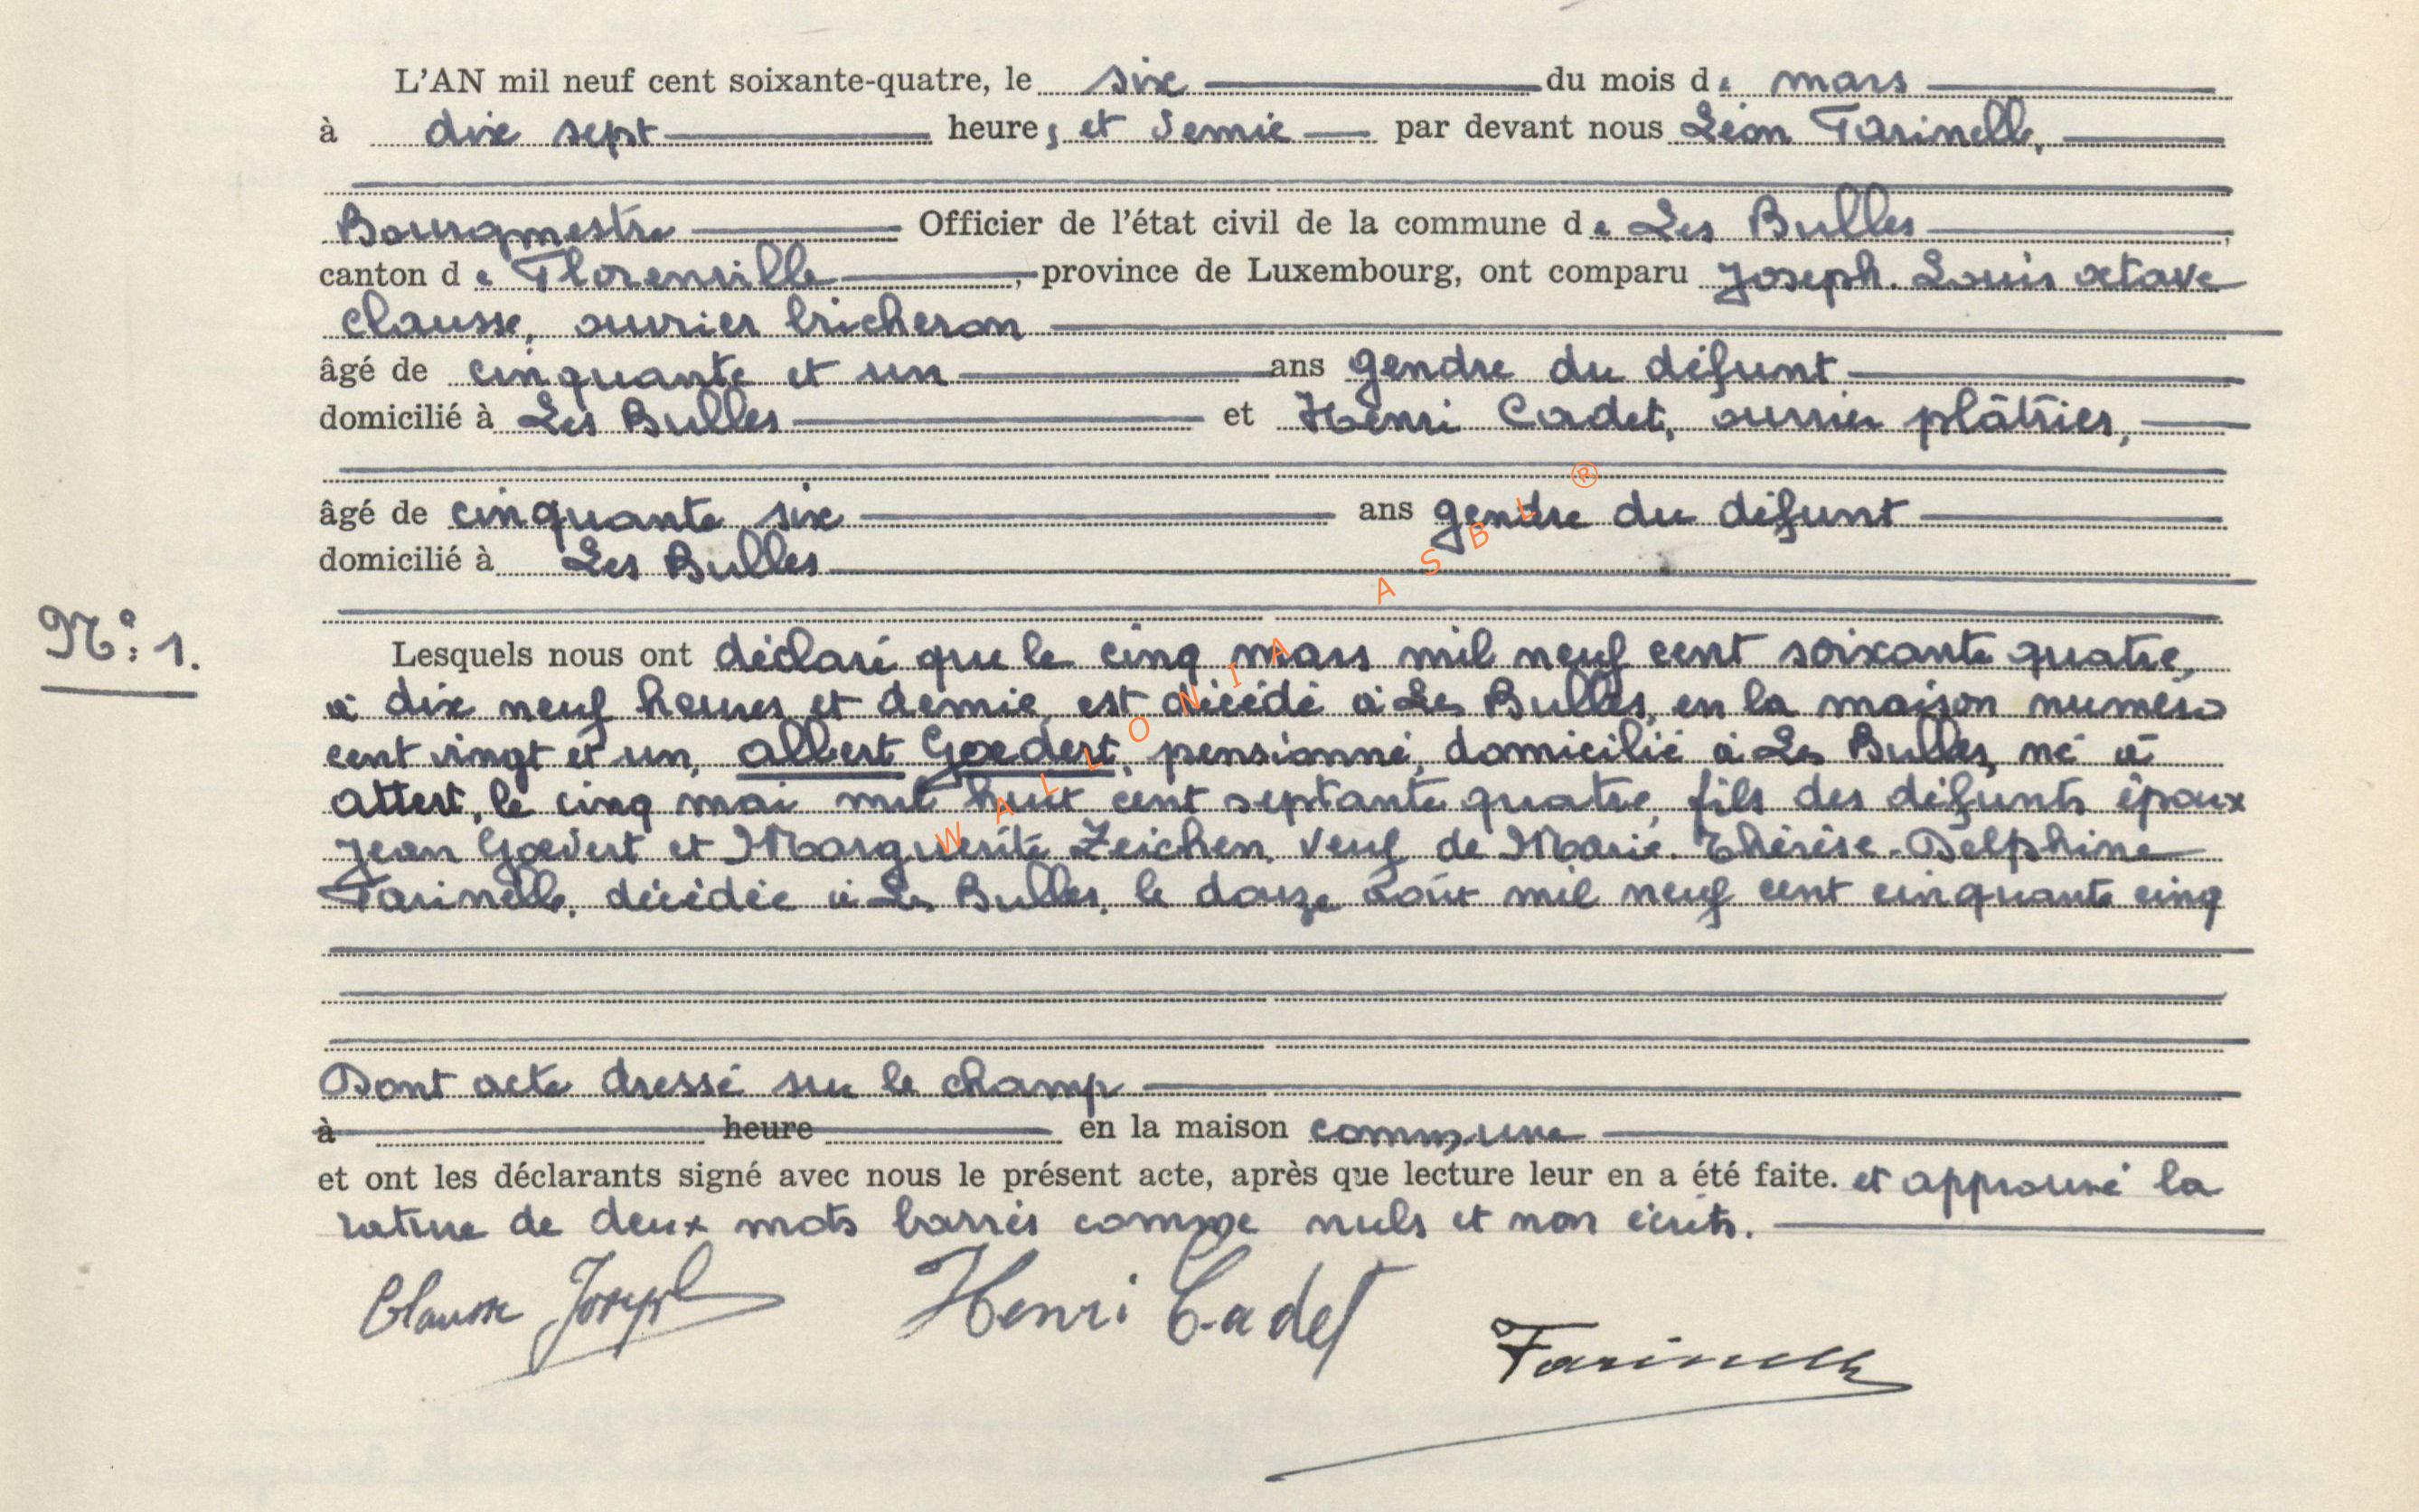 L'AN mil neuf cent soixante-quatre, le six du mois de mars
à dix sept heures et demie par devant nous Léon Farinelle,
Bourgmestre Officier de l'état civil de la commune de Les Bulles,
canton de Florenville, province de Luxembourg, ont comparu Joseph. Louis octave
Clausse, ouvrier bricheron
âgé de cinquante et un ans gendre du défunt
domicilié à Les Bulles et Henri Cadet, ouvrier plâtrier,
âgé de cinquante six ans gendre du défunt
domicilié à Les Bulles
N°: 1.
Lesquels nous ont déclaré que le cinq mars mil neuf cent soixante quatre,
à dix neuf heures et demie, est décédé à Les Bulles, en la maison numéro
cent vingt et un, Albert Goedert, pensionné, domicilié à Les Bulles, né à
Attert, le cinq mai mil huit cent septante quatre, fils des défunts époux
Jean Goedert et Marguerite Zeichen, veuf de Marie. Thérèse-Delphine
Farinelle, décédée à Les Bulles, le douze août mil neuf cent cinquante cinq
Dont acte dressé sur le champ
à heure en la maison commune
et ont les déclarants signé avec nous le présent acte, après que lecture leur en a été faite. et approuvé la
rature de deux mots barrés comme nuls et non écrits.
Clausse Joseph Henri Cadet Farinelle
WALLONIA ASBL ®